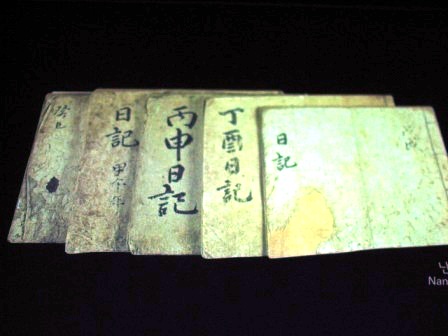 癸巳
日記
甲午年
丙申日記
丁酉日記
日記
戊戌
난
Nan